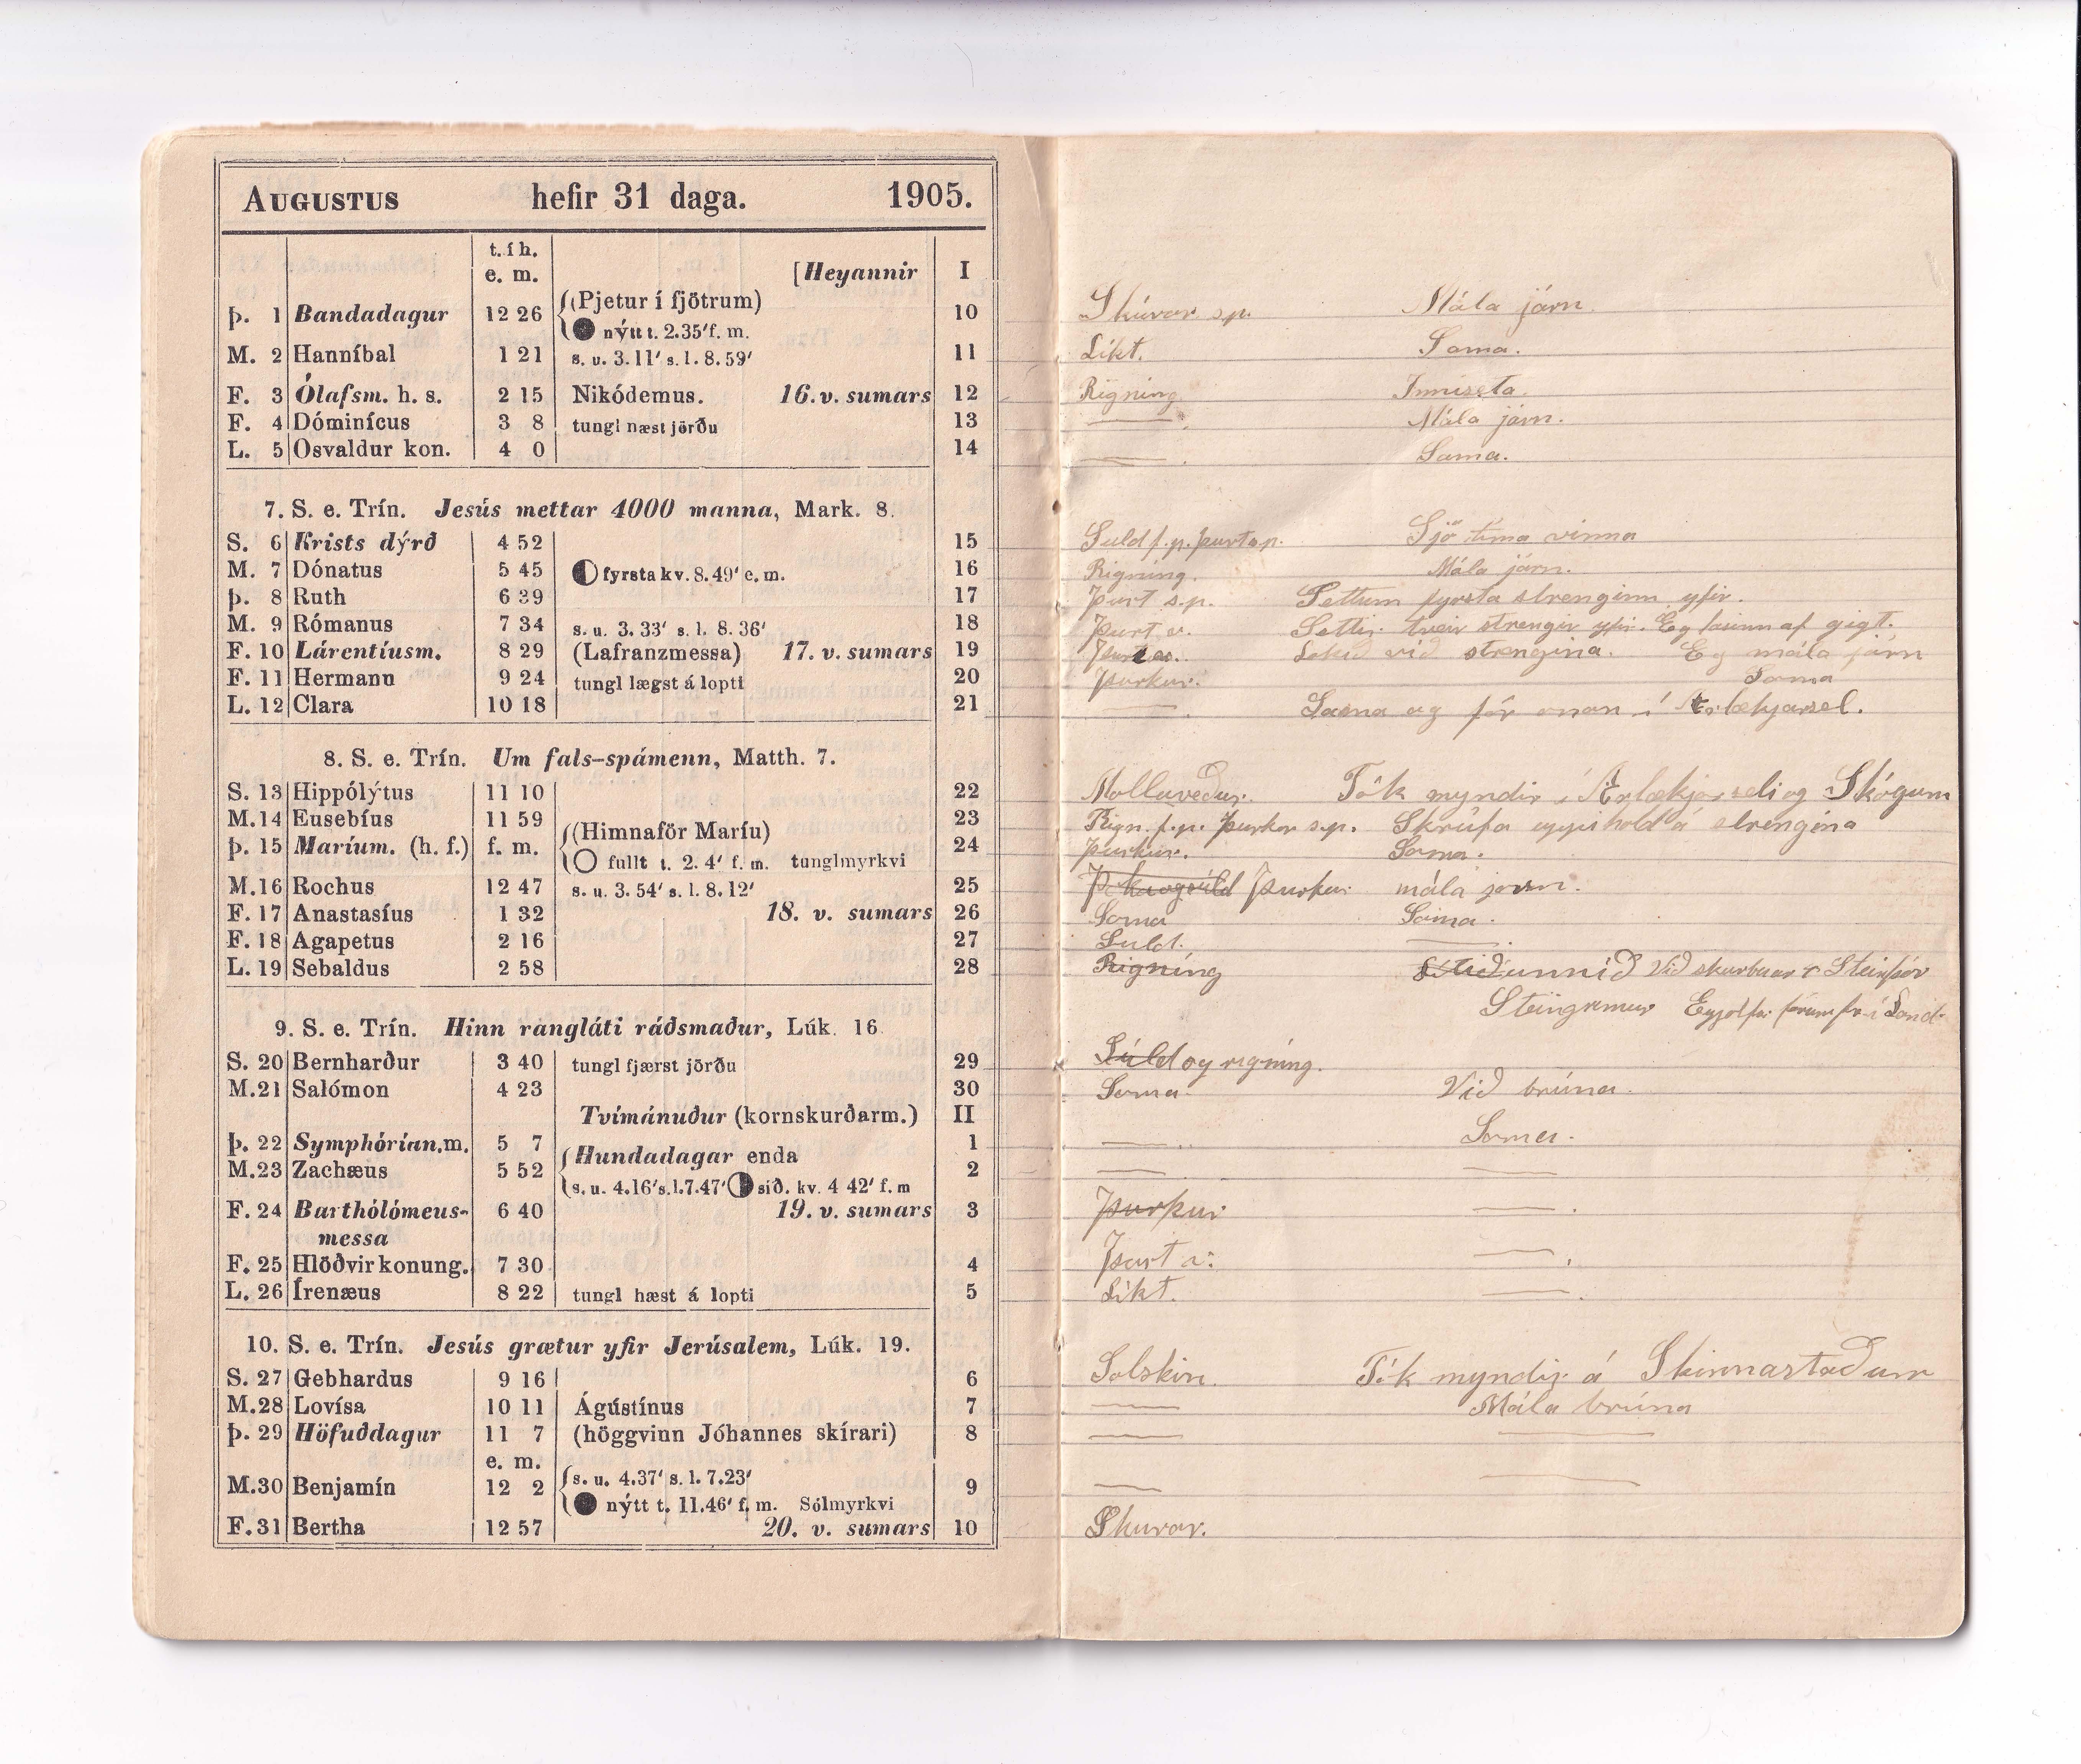 AUGUSTUS hefir 31 daga. 1905.
t. í h. e. m. [Heyannir I
Þ. 1 Bandadagur 12 26 (Pjetur í fjötrum) nýtt t. 2.35' f. m. 10
M. 2 Hanníbal 1 21 s. u. 3.11' s. l. 8.59' 11
F. 3 Ólafsm. h. s. 2 15 Nikódemus. 16. v. sumars 12
F. 4 Dóminícus 3 8 tungl næst jörðu 13
L. 5 Osvaldur kon. 4 0 14
7. S. e. Trín. Jesús mettar 4000 manna, Mark. 8.
S. 6 Krists dýrð 4 52 15
M. 7 Dónatus 5 45 fyrsta kv. 8.49' e. m. 16
Þ. 8 Ruth 6 39 17
M. 9 Rómanus 7 34 s. u. 3.33' s. l. 8.36' 18
F. 10 Lárentíusm. 8 29 (Lafranzmessa) 17. v. sumars 19
F. 11 Hermann 9 24 tungl lægst á lopti 20
L. 12 Clara 10 18 21
8. S. e. Trín. Um fals-spámenn, Matth. 7.
S. 13 Hippólýtus 11 10 22
M. 14 Eusebíus 11 59 23
Þ. 15 Maríum. (h. f.) f. m. (Himnaför Maríu) fullt t. 2. 4' f. m. tunglmyrkvi 24
M. 16 Rochus 12 47 s. u. 3.54' s. l. 8.12' 25
F. 17 Anastasíus 1 32 18. v. sumars 26
F. 18 Agapetus 2 16 27
L. 19 Sebaldus 2 58 28
9. S. e. Trín. Hinn rangláti ráðsmaður, Lúk. 16
S. 20 Bernharður 3 40 tungl fjærst jörðu 29
M. 21 Salómon 4 23 30
Tvímánuður (kornskurðarm.) II
Þ. 22 Symphórían.m. 5 7 1
M. 23 Zachæus 5 52 Hundadagar enda s. u. 4.16' s. l. 7.47' síð. kv. 4 42' f. m 2
F. 24 Barthólómeus- 6 40 19. v. sumars 3
messa
F. 25 Hlöðvir konung. 7 30 4
L. 26 Írenæus 8 22 tungl hæst á lopti 5
10. S. e. Trín. Jesús grætur yfir Jerúsalem, Lúk. 19.
S. 27 Gebhardus 9 16 6
M. 28 Lovísa 10 11 Ágústínus 7
Þ. 29 Höfuðdagur 11 7 (höggvinn Jóhannes skírari) 8
e. m.
M. 30 Benjamín 12 2 s. u. 4.37' s. l. 7.23' nýtt t. 11.46' f. m. Sólmyrkvi 9
F. 31 Bertha 12 57 20. v. sumars 10
Skúrar s.p. Mála járn.
Líkt. Sama.
Rigning Inniseta.
Mála járn.
Sama.
Suld f.p. þurt s.p. Sjö tíma vinna
Rigning. Mála járn.
Þurt s.p. Settum fyrsta strenginn yfir.
Þurt a. Settir tveir strengir yfir. Eg lasinn af gigt.
Lokið við strengina. Eg mála járn
Þurkur. Sama
Sama og fór onan í Ærlækjarsel.
Molluveður. Tók myndir í Ærlækjarseli og Skógum
Rign. f.p. Þurkur s.p. Skrúfa uppihold á strengina
Þurkur. Sama.
Þurkur mála járn.
Sama Sama.
Suld.
Rigning unnið Við skurbuar & Steinþór
Steingrímur Eyjolfur fórum fr. í Land-
Súld og rigning.
Sama. Við brúna.
Sama.
Þurkur
Þurt a.
Líkt.
Solskin. Tók myndir á Skinnastaðum
Mála brúna
Skurar.